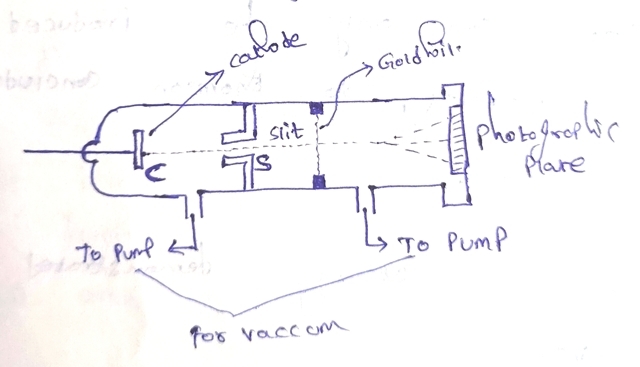 cathode
Gold foil.
slit
C
S
photographic
plate
To Pump
To PUMP
for vaccum